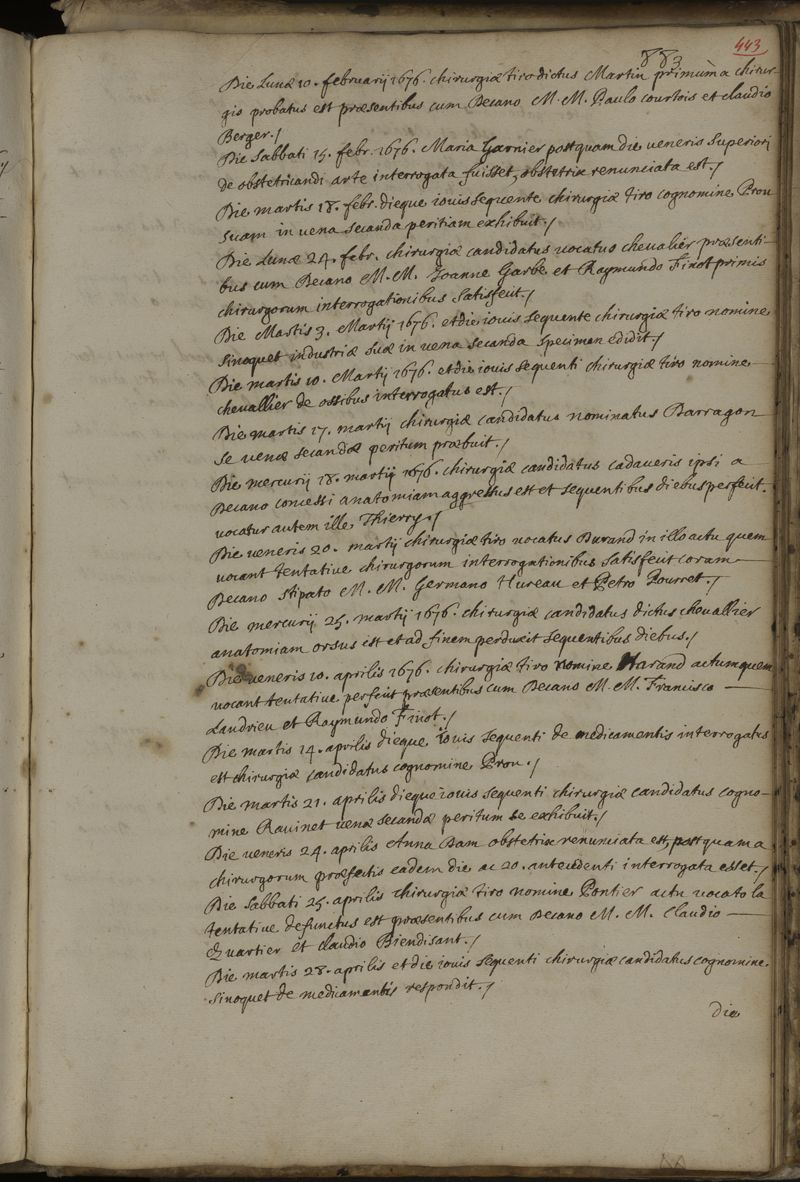 443
883
Die Lunæ 10. februarij 1676. chirurgiæ tiro dictus Martin primùm a chirur-
gis probatus est præsentibus cum Decano M. M. Paulo courtois et claudio
Berger./
Die Sabbati 15. febr. 1676. Maria Garnier postquam die veneris superiori
de obstetricandi arte interrogata fuisset, obstetrix renunciata est./
Die martis 18. febr. dieque iovis sequente chirurgiæ tiro cognomine Prou
suam in vena secanda peritiam exhibuit./
Die Lunæ 24. febr. chirurgiæ candidatus vocatus chevalier præsenti-
bus cum Decano M. M. Joanne Garbe et Raymundo Finot primis
chirurgorum interrogationibus satisfecit./
Die Mastis 3. Martij 1676. et die iovis sequente chirurgiæ tiro nomine
Sinoquet industriæ suæ in vena secanda specimen edidit./
Die martis 10. Martij 1676. et die iovis sequenti chirurgiæ tiro nomine
chevallier de ossibus interrogatus est./
Die martis 17. martij chirurgiæ candidatus nominatus Barragon
se venæ secandæ peritum præbuit./
Die mercurij 18. martij 1676. chirurgiæ candidatus cadaveris ipsi a
Decano concessi anatomiam aggressus est et sequentibus diebus perfecit.
vocatur autem ille Thierry./
Die veneris 20. martij chirurgiæ tiro vocatus Durand in illo actu quem
vocant tentative chirurgorum interrogationibus satisfecit coram
Decano stipato M. M. Germano Hureau et Petro Pourret./
Die mercurij 25. martij 1676. chirurgiæ candidatus dictus chevallier
anatomiam orsus est et ad finem perduxit sequentibus diebus./
Die veneris 10. aprilis 1676. chirurgiæ tiro nomine Harand actum quem
vocant tentative perfecit præsentibus cum Decano M. M. Francisco
Landrieu et Raymundo Finot./
Die martis 14. aprilis dieque iovis sequenti de medicamentis interrogatus
est chirurgiæ candidatus cognomine Prou./
Die martis 21. aprilis dieque iovis sequenti chirurgiæ candidatus cogno-
mine Ravinet venæ secandæ peritum se exhibuit./
Die veneris 24. aprilis Anna Bam obstetrix renunciata est, postquam a
chirurgorum præfectis eadem die ac 20. antecedenti interrogata esset./
Die Sabbati 25. aprilis chirurgiæ tiro nomine Pontier actu vocato la
tentative defunctus est præsentibus cum Decano M. M. Claudio
Quartier et claudio Biendisant./
Die martis 28. aprilis et die iovis sequenti chirurgiæ candidatus cognomine
Sinoquet de medicamentis respondit./
die